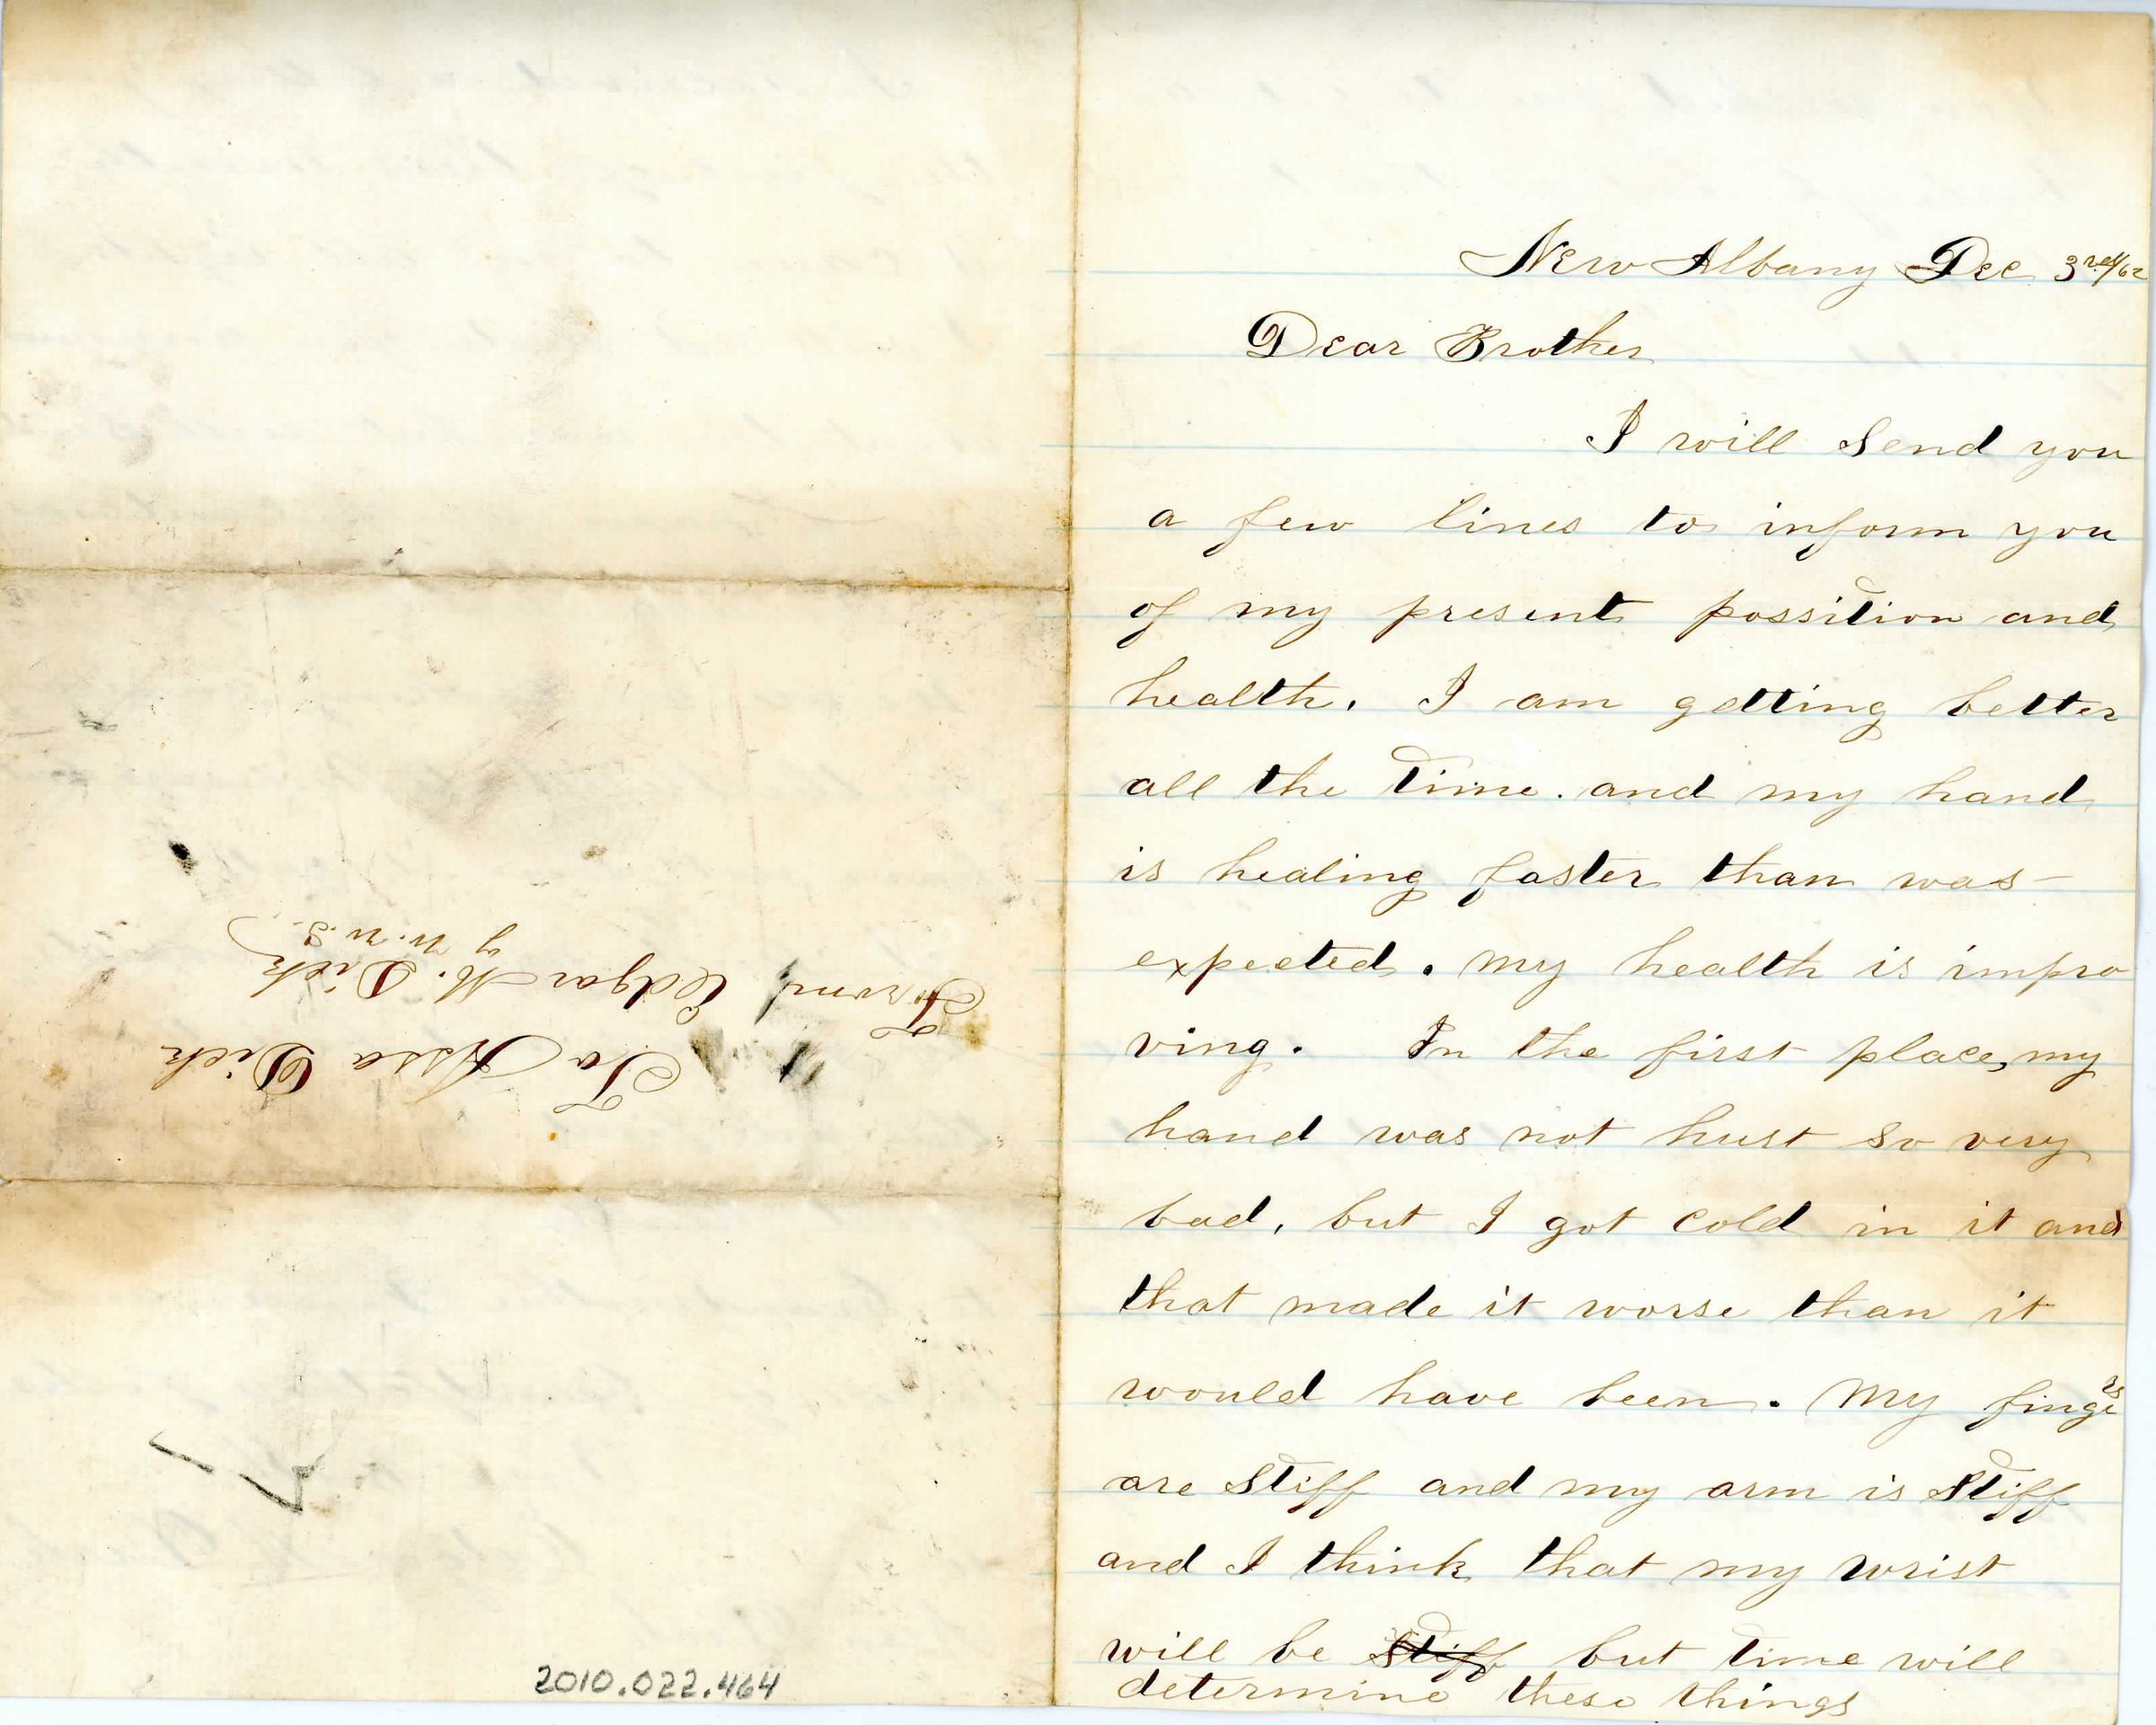 New Albany Dec 3rd/62
Dear Brother
I will send you
a few lines to inform you
of my present possition and
health. I am getting better
all the time. and my hand
is healing faster than was
expected. my health is impro
ving. In the first place, my
hand was not hurt so very
bad, but I got cold in it and
that made it worse than it
would have been. My fingers
are stiff and my arm is stiff
and I think that my wrist
will be stiff but time will
determine these things
To Assa Dick
From Edgar M. Dick
2010.022.464